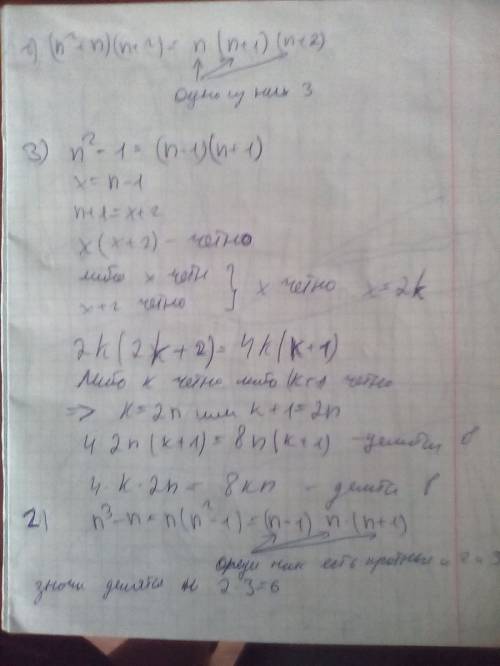 1) (n²+n)(n+2) = n (n+1) (n+2)
одно из них 3
3) n² - 1 = (n-1)(n+1)
x = n-1
n+1 = x+2
x(x+2) - четно
либо x четн
x+2 четно } x четно x = 2k
2k(2k+2) = 4k(k+1)
Либо k четно либо (k+1) четно
=> k = 2n или k+1 = 2n
4 2n(k+1) = 8n(k+1) - делится 8
4·k·2n = 8kn - делится 8
2) n³-n = n(n²-1) = (n-1) n·(n+1)
среди них есть кратные и 2 и 3
значи делятся н 2·3=6